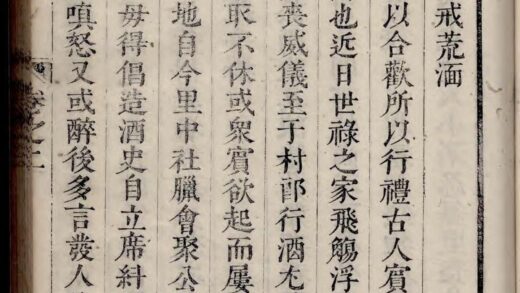 戒荒湎
以合歡所以行禮古人賓
也近日世祿之家飛觴浮
喪威儀至于村郎行酒尤
冣不休或衆賓欲起而屢
地自今里中社臘會聚公
毋得倡造酒史自立席糾
嗔怒又或醉後多言發人
卷之二